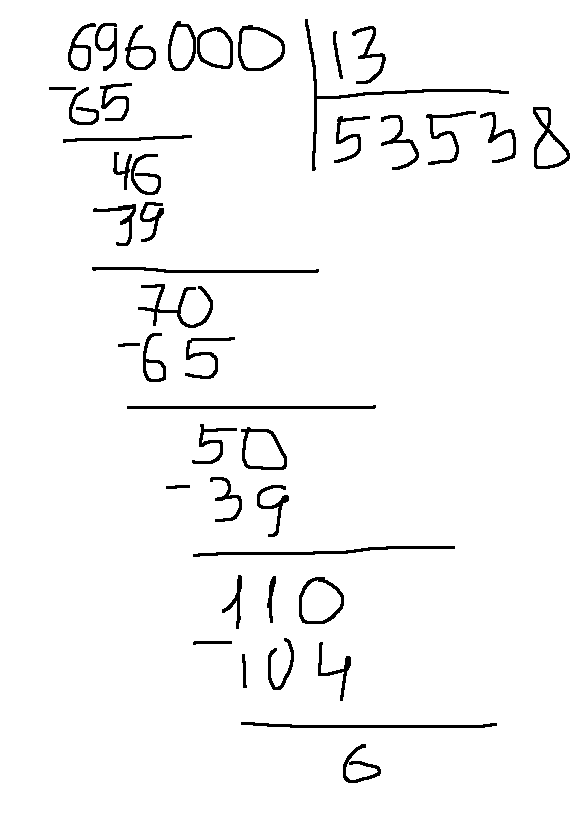 696000 13
-65 53538
46
-39
70
-65
50
-39
110
-104
6